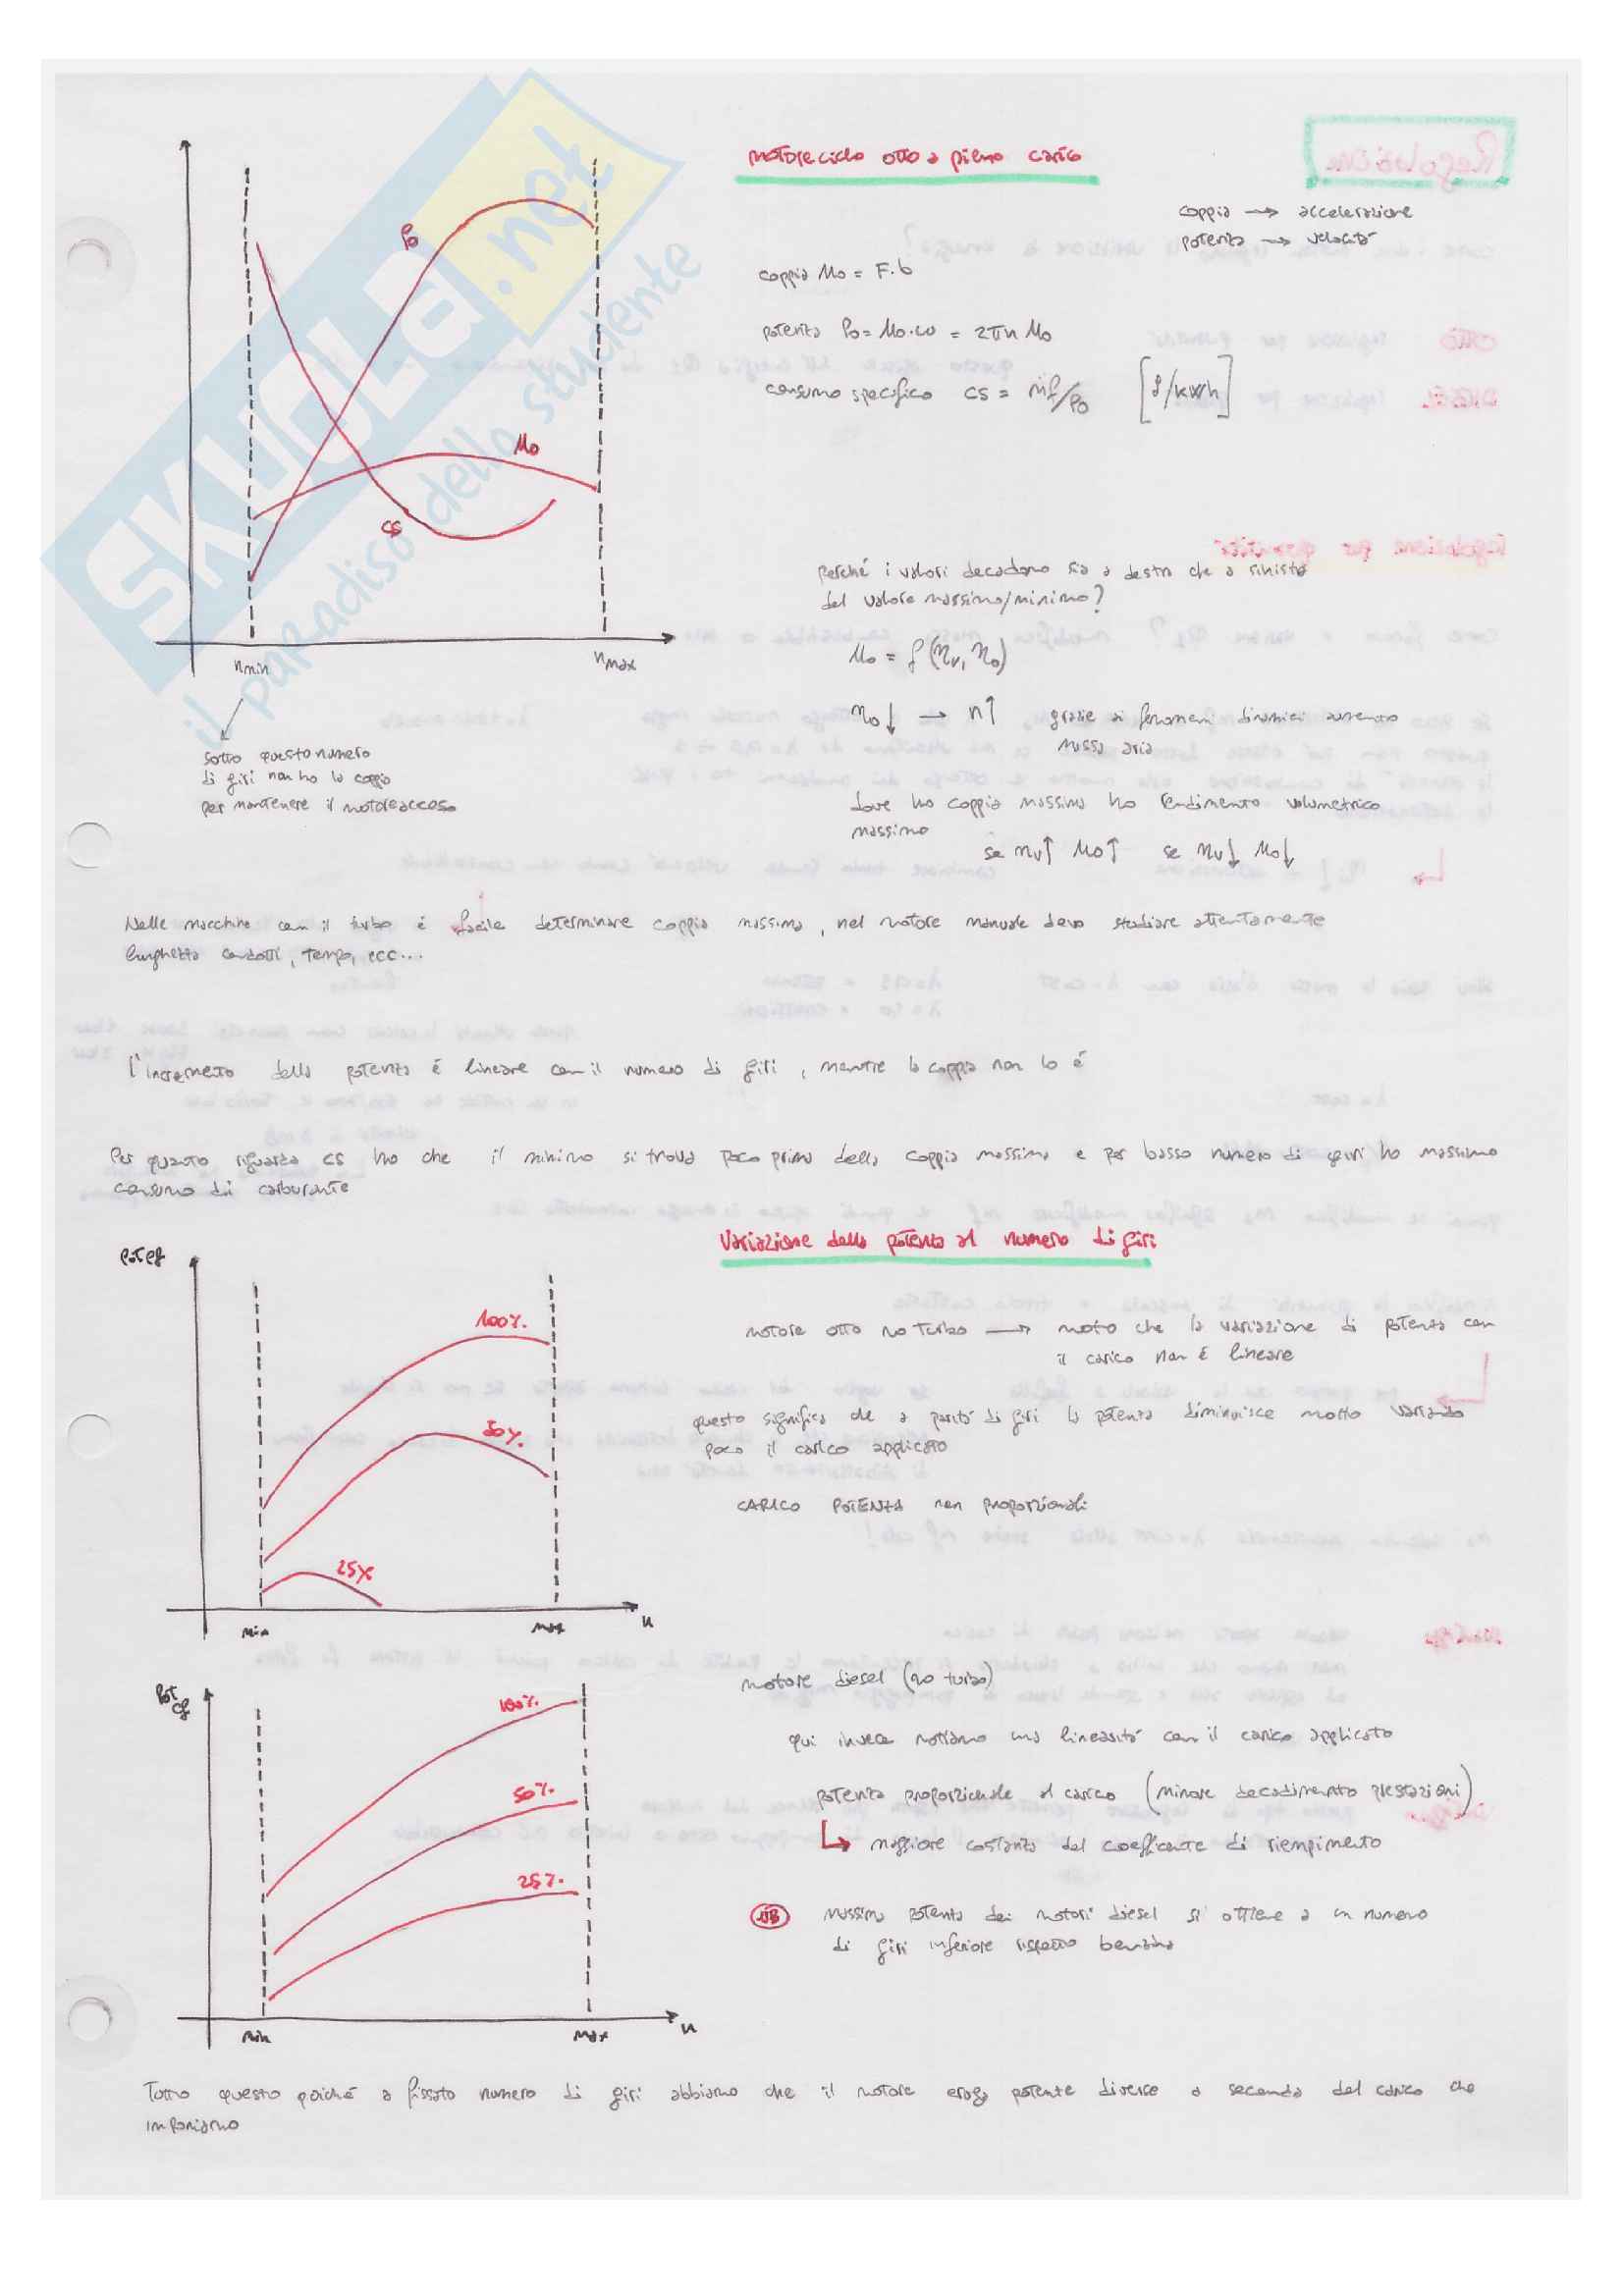 motore ciclo otto a pieno carico
coppia → accelerazione
potenza → velocità
coppia Mo = F·b
potenza Po = Mo·ω = 2πn Mo
consumo specifico cs = ṁf/Po [g/kWh]
Po
Mo
cs
nmin
nmax
sotto questo numero
di giri non ho la coppia
per mantenere il motore acceso
perché i valori decadono sia a destra che a sinistra
del valore massimo/minimo?
Mo = f(ηv, ηo)
ηo↓ → n↑ grazie ai fenomeni dinamici aumento
massa aria
dove ho coppia massima ho rendimento volumetrico
massimo
se ηv↑ Mo↑ se ηv↓ Mo↓
Nelle macchine con il turbo è facile determinare coppia massima, nel motore manuale devo studiare attentamente
lunghezza condotti, tempo, ecc...
l'incremento della potenza é lineare con il numero di giri, mentre la coppia non lo é
Per quanto riguarda cs ho che il minimo si trova poco prima della coppia massima e per basso numero di giri ho massimo
consumo di carburante
Variazione della potenza al numero di giri
Pot ef
100%
50%
25%
min
max
n
motore otto no turbo → noto che la variazione di potenza con
il carico non é lineare
questo significa che a parità di giri la potenza diminuisce molto variando
poco il carico applicato
CARICO POTENZA non proporzionali
Pot ef
100%
50%
25%
min
max
n
motore diesel (no turbo)
qui invece notiamo una linearità con il carico applicato
potenza proporzionale al carico (minore decadimento prestazioni)
↳ maggiore costanza del coefficente di riempimento
NB massima potenza dei motori diesel si ottiene a un numero
di giri inferiore rispetto benzina
Tutto questo poiché a fissato numero di giri abbiamo che il motore eroga potenze diverse a seconda del carico che
imponiamo
SKUOLA.net
il paradiso dello studente